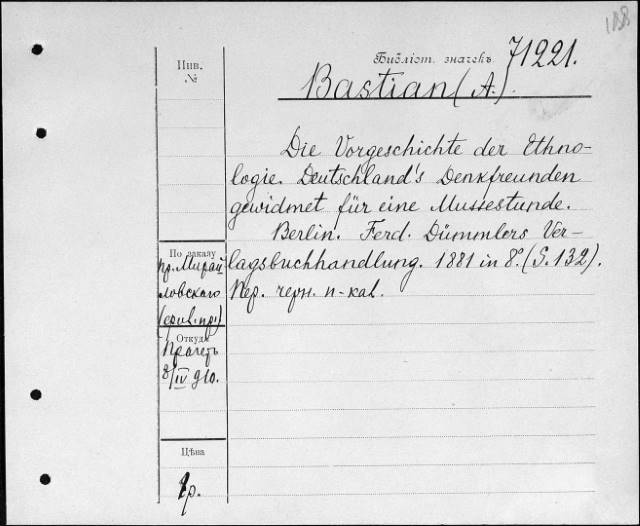 188
Бібліот. значекъ 71221.
Инв.
№
Bastian (A.).
Die Vorgeschichte der Ethno-
logie. Deutschland's Denkfreunden
gewidmet für eine Mussestunde.
Berlin. Ferd. Dümmlers Ver-
lagsbuchhandlung. 1881 in 8º. (S. 132).
Пер. черн. п-кал.
По заказу
пр. Мирай
ловскаго
Откуда
8/IV 910.
Цѣна
р.